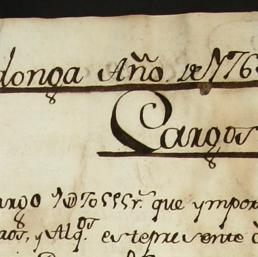 donga Año de 176
Cargos
argo que ympor
ros, y Alqs. estepresente